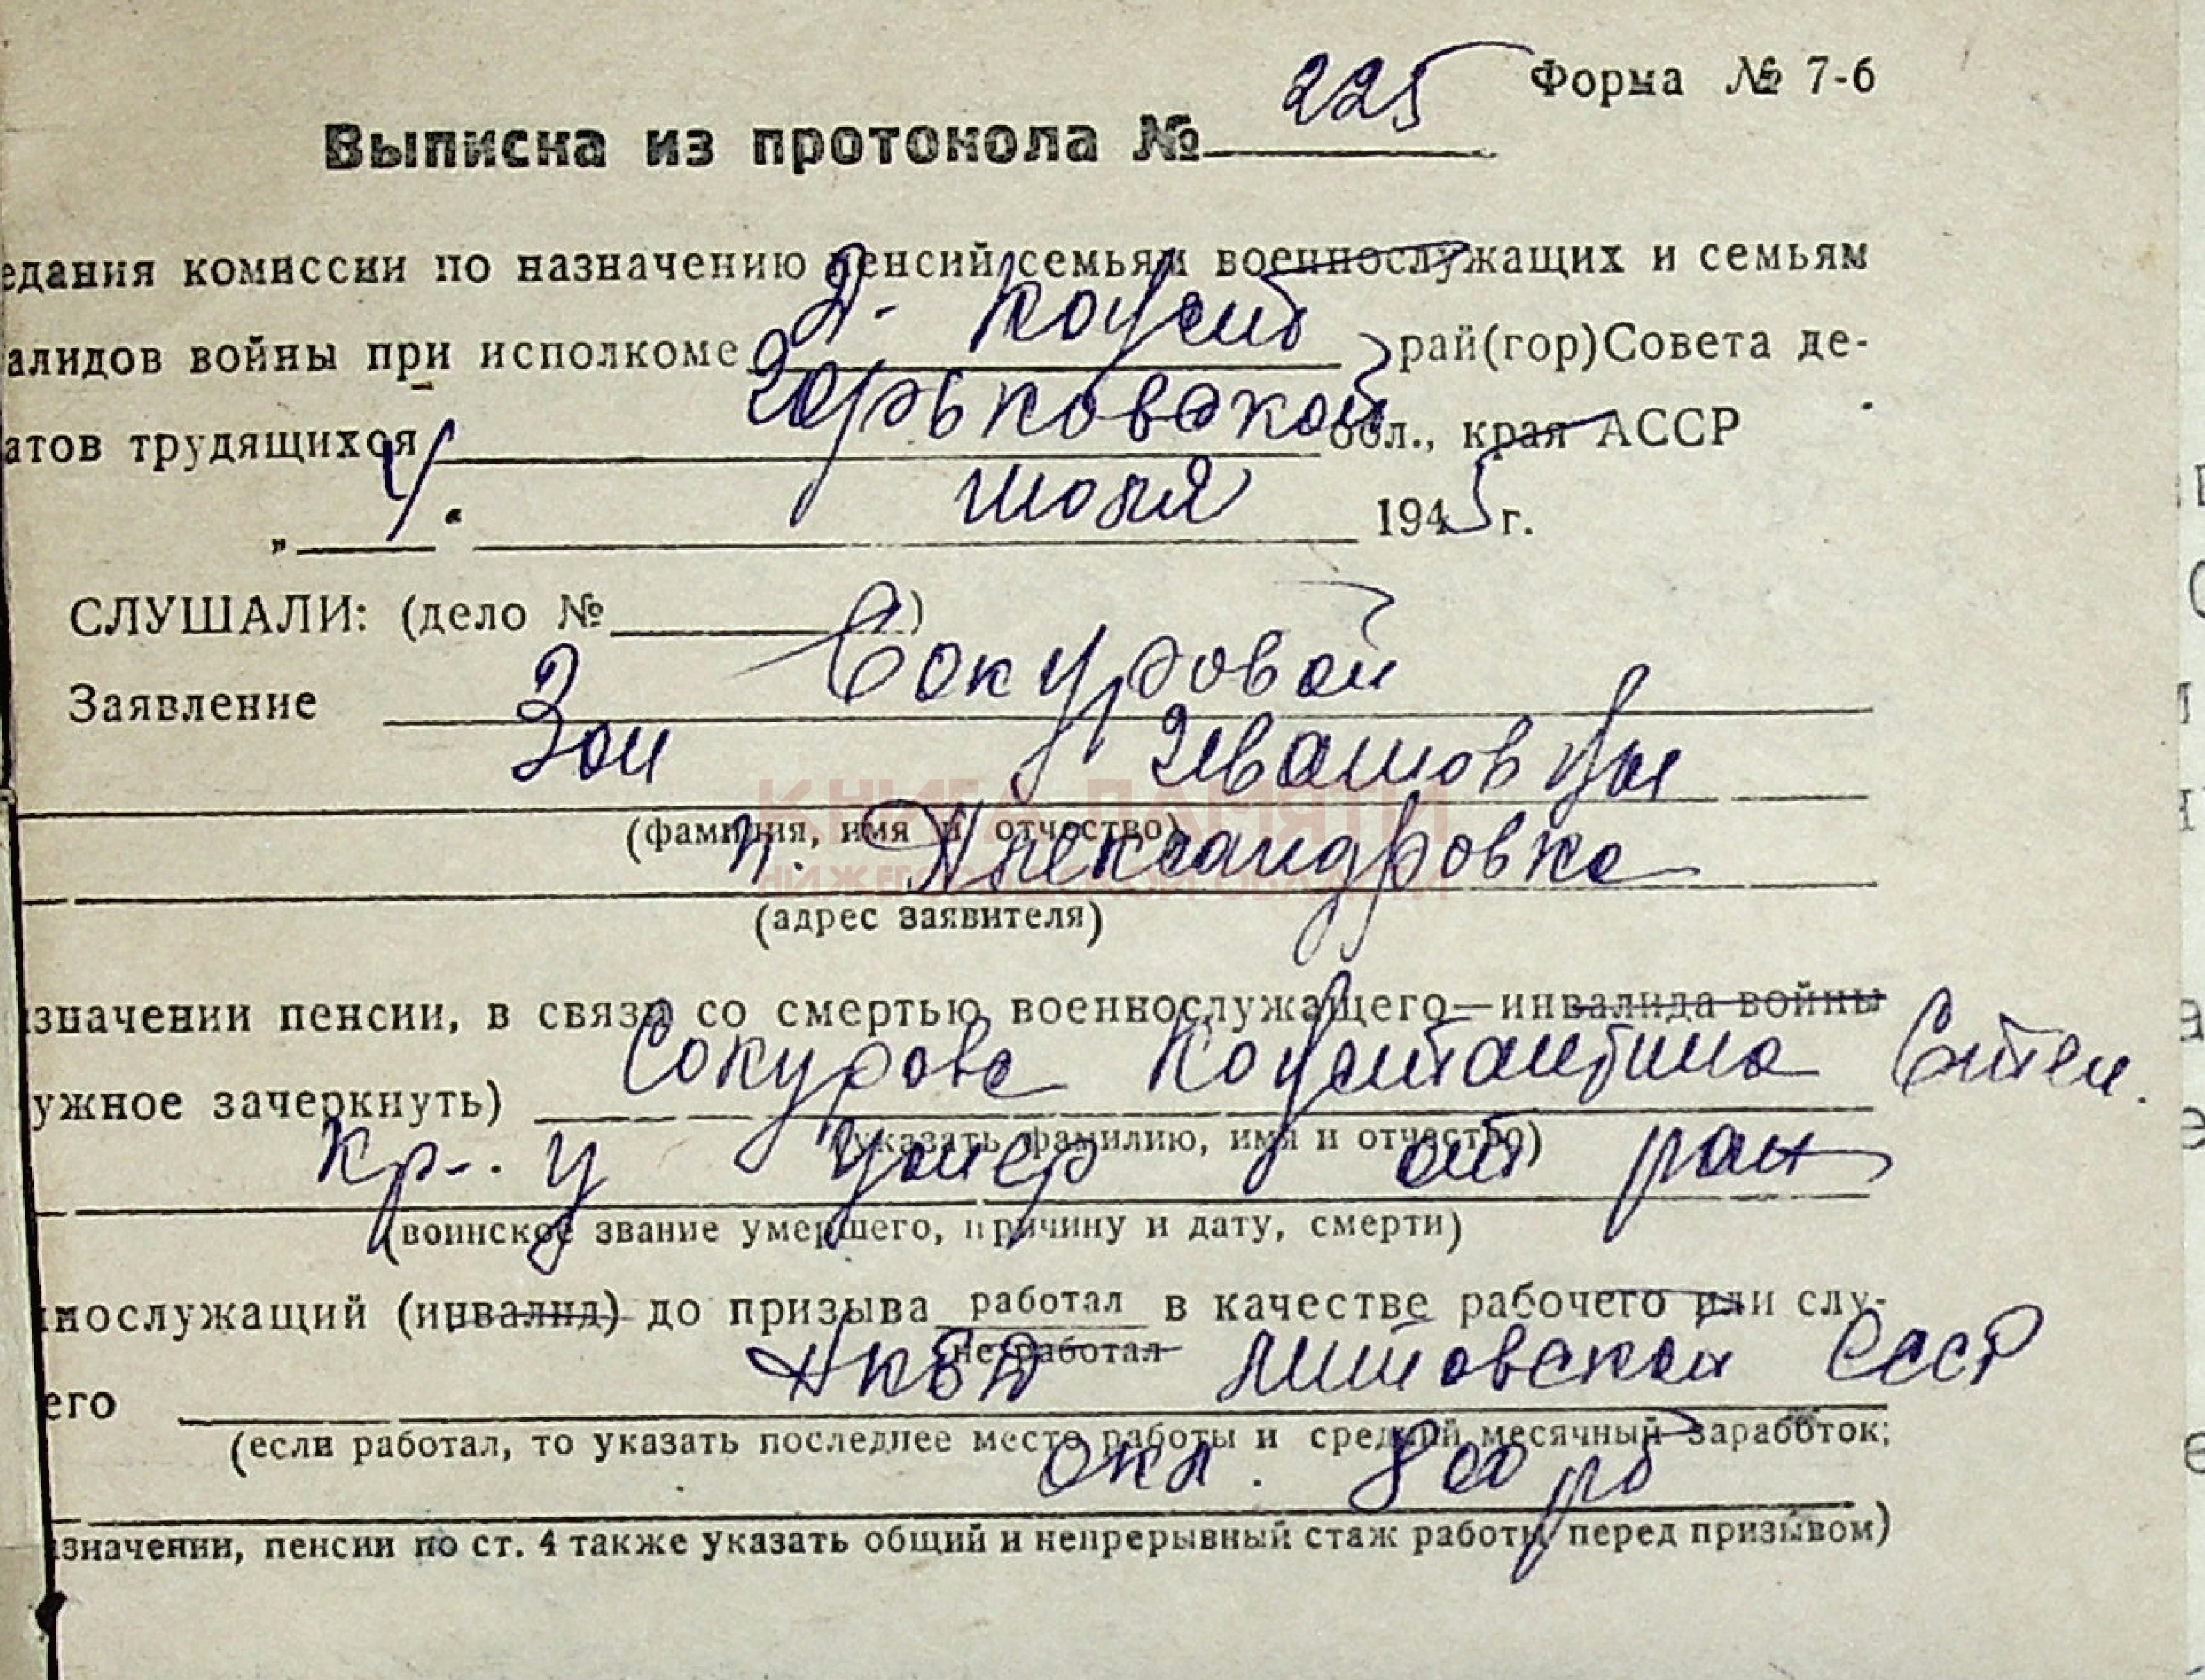 225 Форма № 7-б
Выписка из протокола №
едания комиссии по назначению пенсий семьям военнослужащих и семьям
Д- Конст
алидов войны при исполкоме рай(гор)Совета де-
Горьковской
атов трудящихся обл., края АССР
„ 4 " июля 1945 г.
СЛУШАЛИ: (дело № )
Заявление Сокуровой
Зои Ивановны
(фамилия, имя и отчество)
п. Александровка
(адрес заявителя)
значении пенсии, в связи со смертью военнослужащего—инвалида войны
ужное зачеркнуть) Сокурова Константина Степ.
(указать фамилию, имя и отчество)
Кр-. умер от ран
(воинское звание умершего, причину и дату, смерти)
нослужащий (инвалид) до призыва работал в качестве рабочего или слу-
не работал
его НКВД Литовской ССР
(если работал, то указать последнее место работы и средний месячный заработок;
окл. 800 рб
значении, пенсии по ст. 4 также указать общий и непрерывный стаж работы перед призывом)
КНИГА ПАМЯТИ
НИЖЕГОРОДСКОЙ ОБЛАСТИ